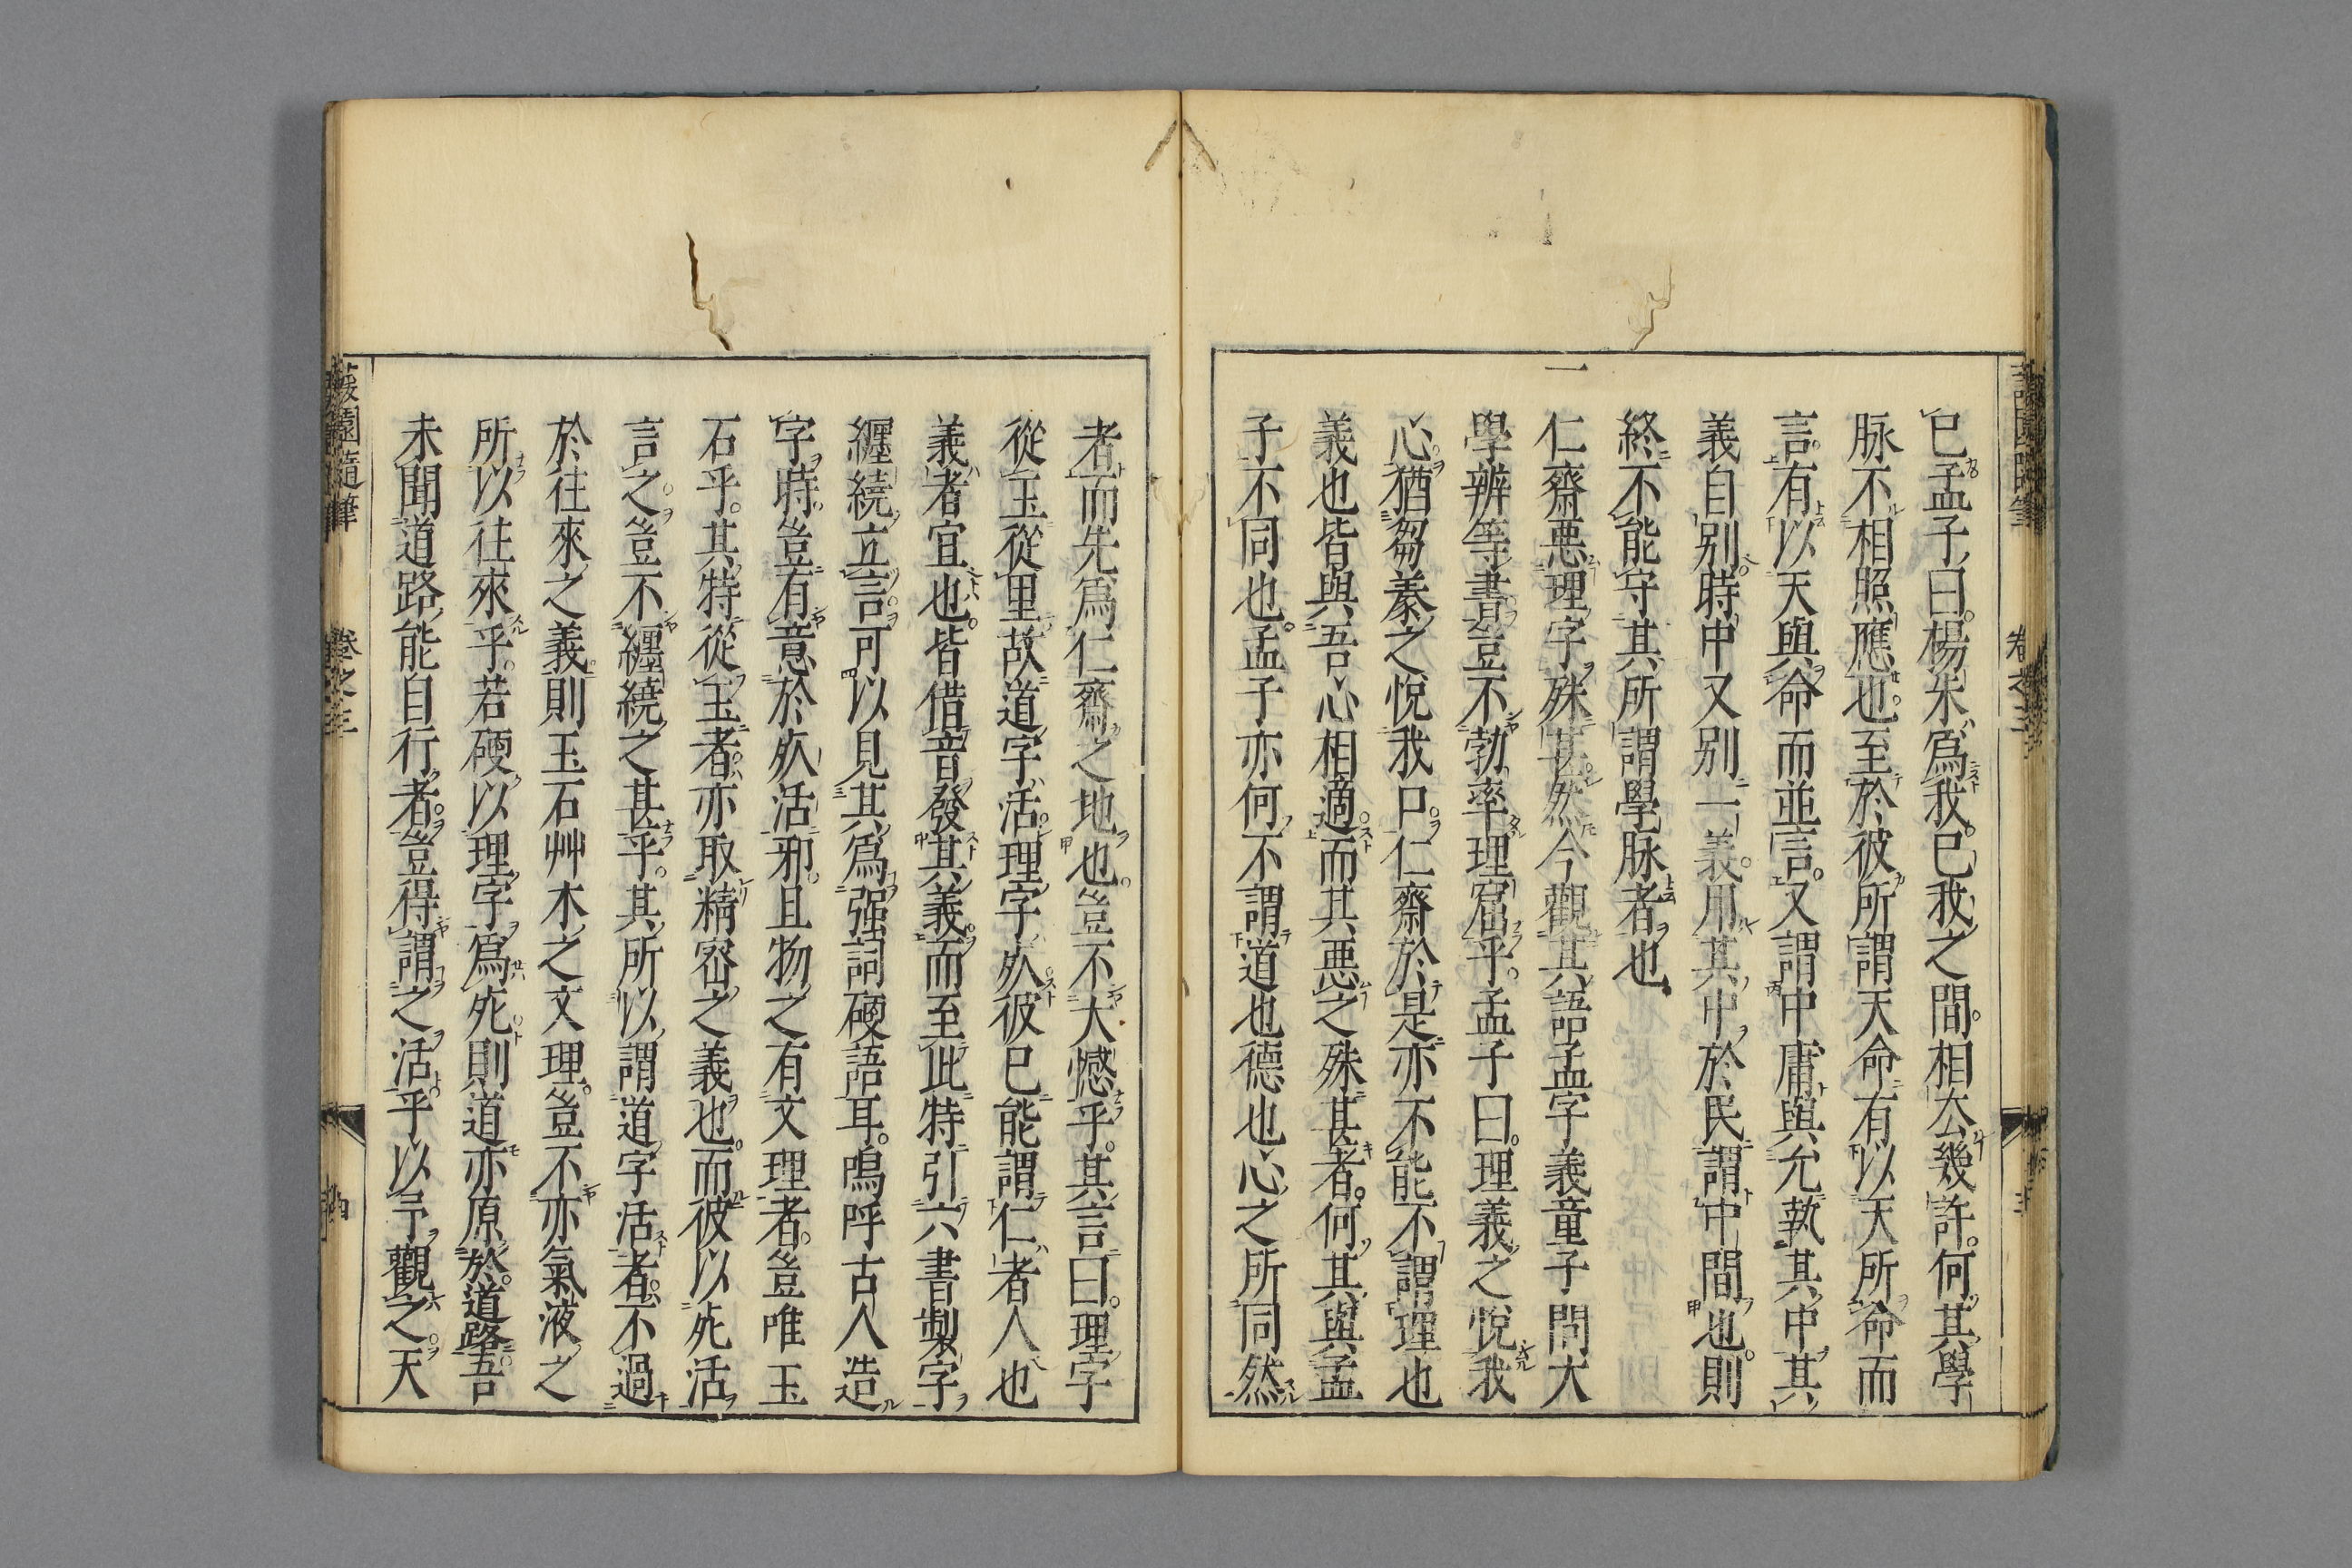 已孟子曰楊朱爲我已我之間相厺幾許何其學
脉不相照應也至於彼所謂天命有以天所命而
言有以天與命而並言又謂中庸與允執其中其
義自別時中又別一義用其中於民謂中間也則
終不能守其所謂學脉者也
一
仁齋惡理字殊甚然今觀其語孟字義童子問大
學辨等書豈不勃率理窟乎孟子曰理義之悅我
心猶芻豢之悅我口仁齋於是亦不能不謂理也
義也皆與吾心相適而其惡之殊甚者何其與孟
子不同也孟子亦何不謂道也德也心之所同然
者而先爲仁齋之地也豈不大憾乎其言曰理字
從玉從里故道字活理字㱙彼已能謂仁者人也
義者宜也皆借音發其義而至此特引六書製字
纏繞立言可以見其爲强詞硬語耳嗚呼古人造
字時豈有意於㱙活邪且物之有文理者豈唯玉
石乎其特從玉者亦取精密之義也而彼以死活
言之豈不纏繞之甚乎其所以謂道字活者不過
於往來之義則玉石艸木之文理豈不亦氣液之
所以往來乎若硬以理字爲死則道亦原於道路吾
未聞道路能自行者豈得謂之活乎以予觀之天
蘐園隨筆
卷之三
四
卷之三